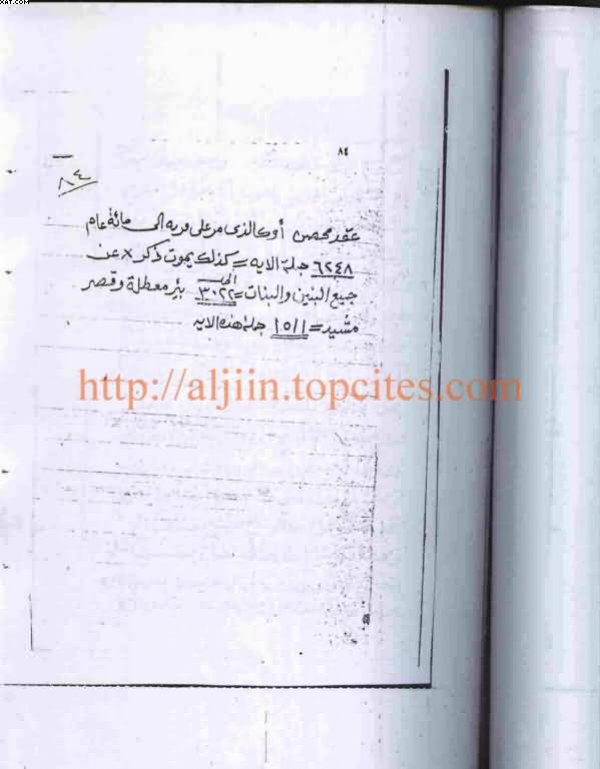 XAT.COM
٨٤
٨٤
عقد محصن أو كالذى مر على قريه الى مائة عام
٦٢٤٨ جملة الايه = كذلك يموت ذكر × عن
جميع البنين والبنات = ٣٠٢٢ بئر معطلة وقصر
مشيد = ١٥١١ جملة هذه الايه
http://aljiin.topcites.com